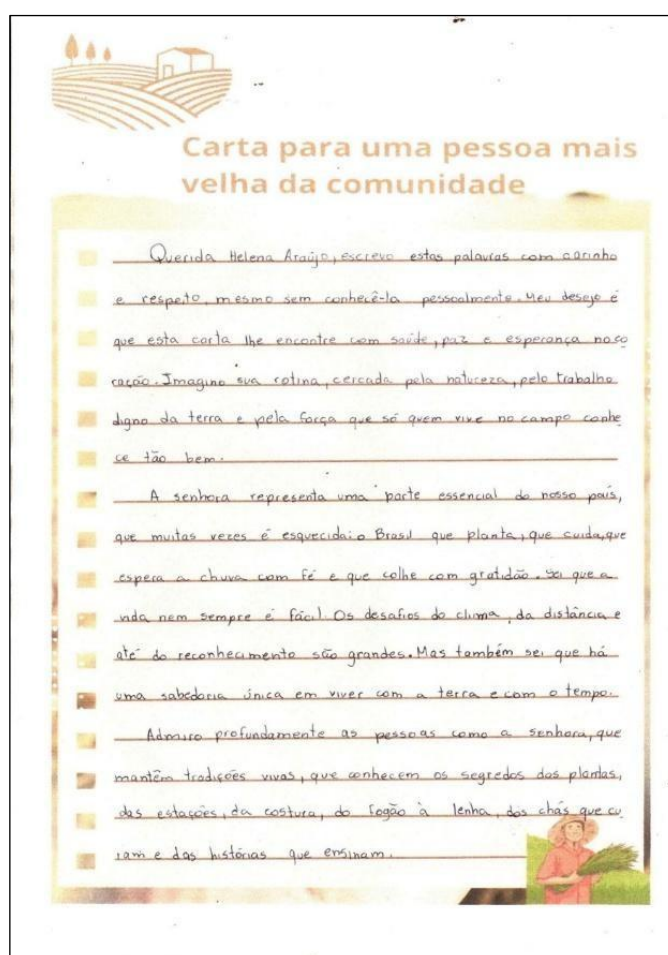 Carta para uma pessoa mais
velha da comunidade
Querida Helena Araújo, escrevo estas palavras com carinho
e respeito, mesmo sem conhecê-la pessoalmente. Meu desejo é
que esta carta lhe encontre com saúde, paz e esperança no co
ração. Imagino sua rotina, cercada pela natureza, pelo trabalho
digno da terra e pela força que só quem vive no campo conhe
ce tão bem.
A senhora representa uma parte essencial do nosso país,
que muitas vezes é esquecida: o Brasil que planta, que cuida, que
espera a chuva com fé e que colhe com gratidão. Sei que a
vida nem sempre é fácil. Os desafios do clima, da distância e
até do reconhecimento são grandes. Mas também sei que há
uma sabedoria única em viver com a terra e com o tempo.
Admiro profundamente as pessoas como a senhora, que
mantêm tradições vivas, que conhecem os segredos das plantas,
das estações, da costura, do fogão à lenha, dos chás que cu
ram e das histórias que ensinam.